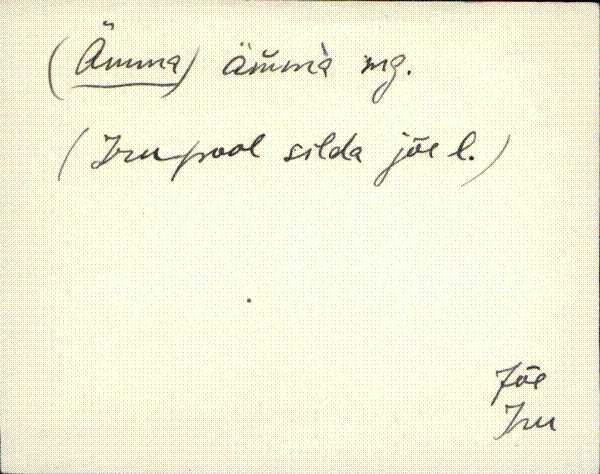 (Ämma) ämmà mg.
(Irupool silda jõe l.)
Jõe
Iru